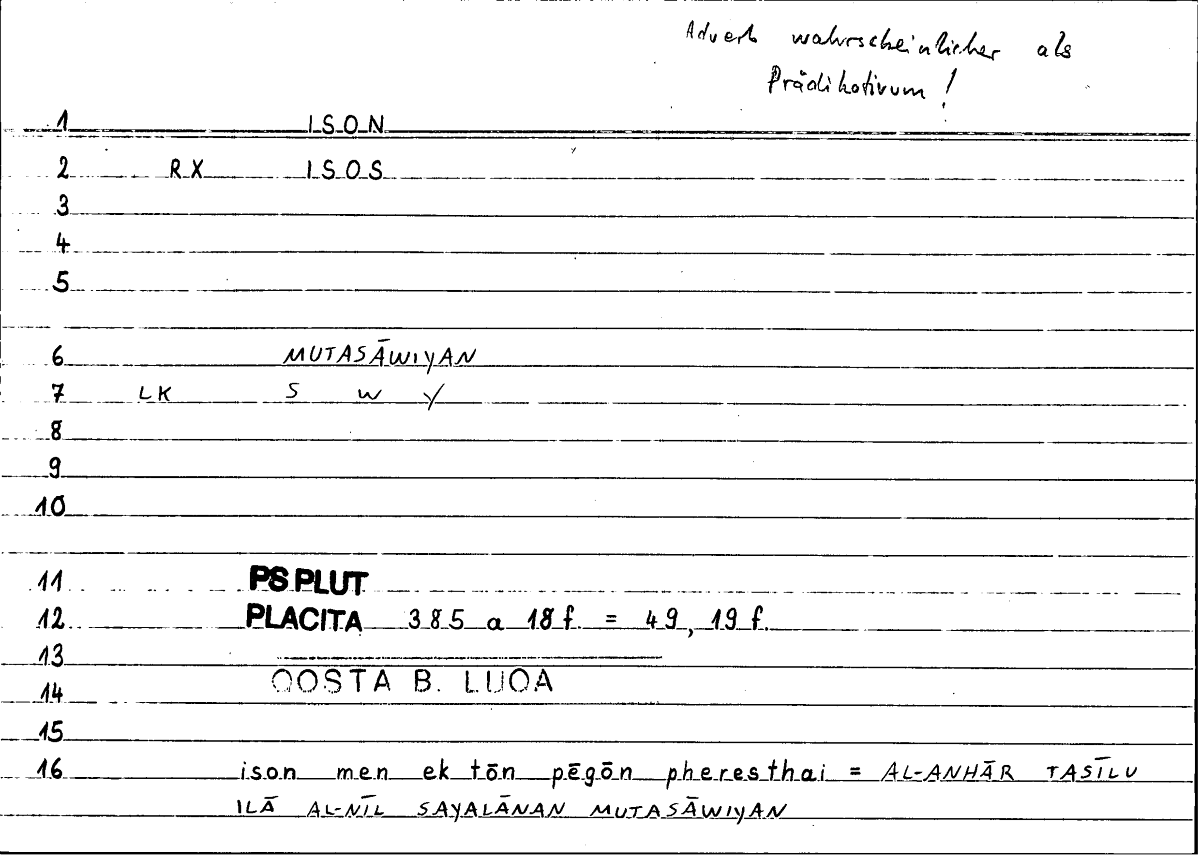 Adverb wahrscheinlicher als
Prädikativum!
1 ISON
2 RX ISOS
3
4
5
6 MUTASĀWIYAN
7 LK S W Y
8
9
10
11 PS PLUT
12 PLACITA 385 a 18 f. = 49, 19 f.
13
14 QOSTA B. LUQA
15
16 ison men ek tōn pēgōn pheresthai = AL-ANHĀR TASĪLU
ILĀ AL-NĪL SAYALĀNAN MUTASĀWIYAN